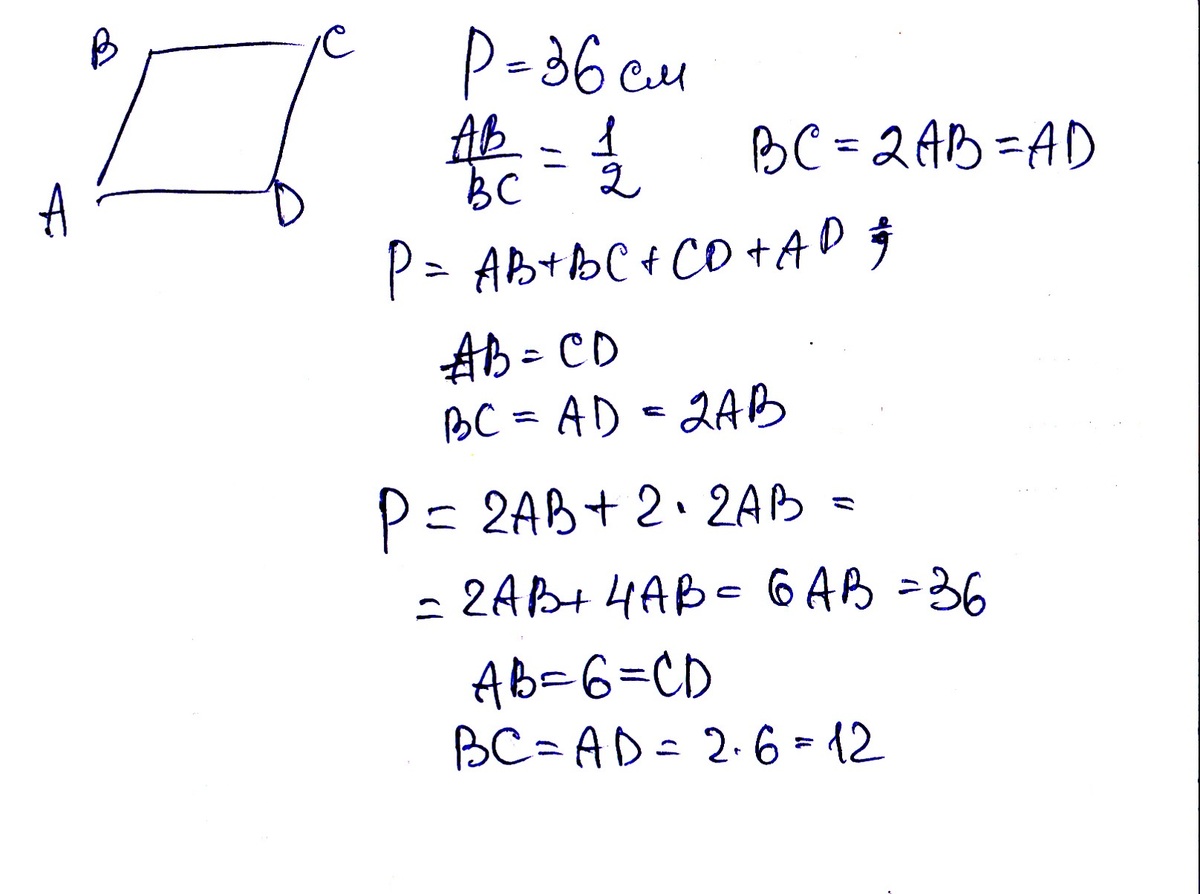 B C
A D
P = 36 см
AB/BC = 1/2 BC = 2AB = AD
P = AB + BC + CD + AD ;
AB = CD
BC = AD = 2AB
P = 2AB + 2 · 2AB =
= 2AB + 4AB = 6AB = 36
AB = 6 = CD
BC = AD = 2 · 6 = 12